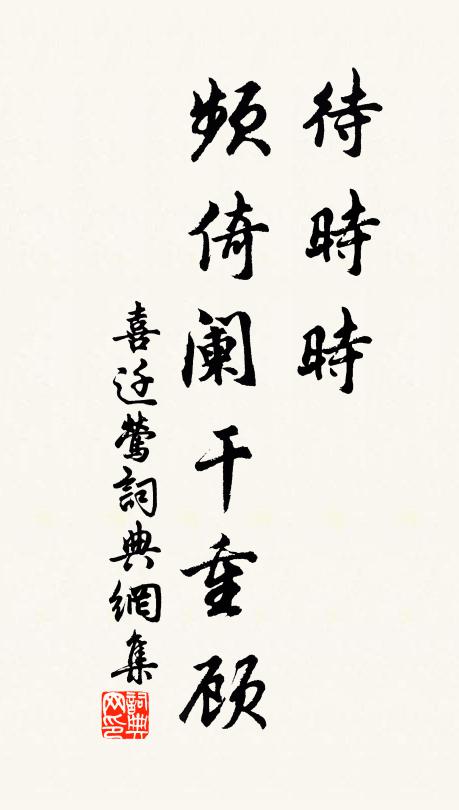 待時時
頻倚阑干重顾
喜迁鶯詞典網集
詞典
网印